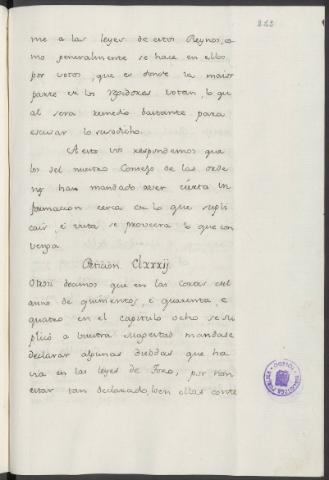 222
me a las leyes de estos Reynos, co
mo generalmente se hace en ellos,
por votos, que es donde la maior
parte de los Rexidores votan, lo qu
al sera remedio bastante para
escusar lo susodicho.
A esto vos respondemos que
los del nuestro Consejo de las orde
nes han mandado aver cierta in
formacion cerca en lo que supli
cais, e vista se proveera lo que con
venga.
Peticion Clxxxij.
Otrosi decimos que en las Cortes del
anno de quinientos, e quarenta, e
quatro en el capitulo ocho se su
plicó a buestra Magestad mandase
declarar algunas dubdas que ha
via en las leyes de Toro, por non
estar tan declarado bien ellas como